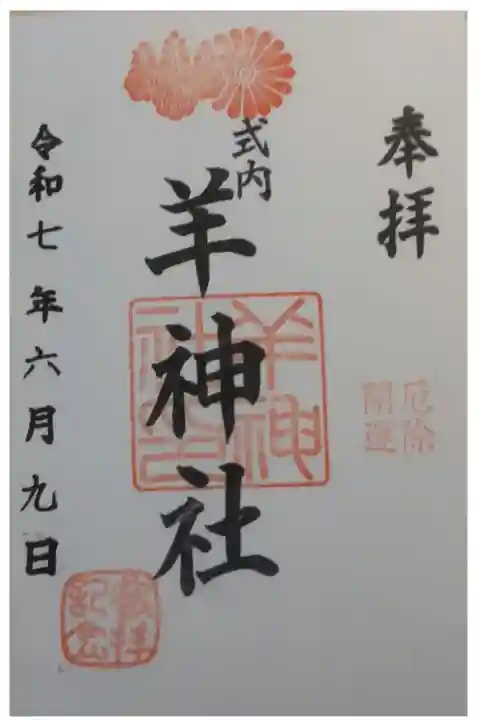 奉拝
厄除
開運
式内
羊神社
羊神
社之印
令和七年六月九日
参拝
記念